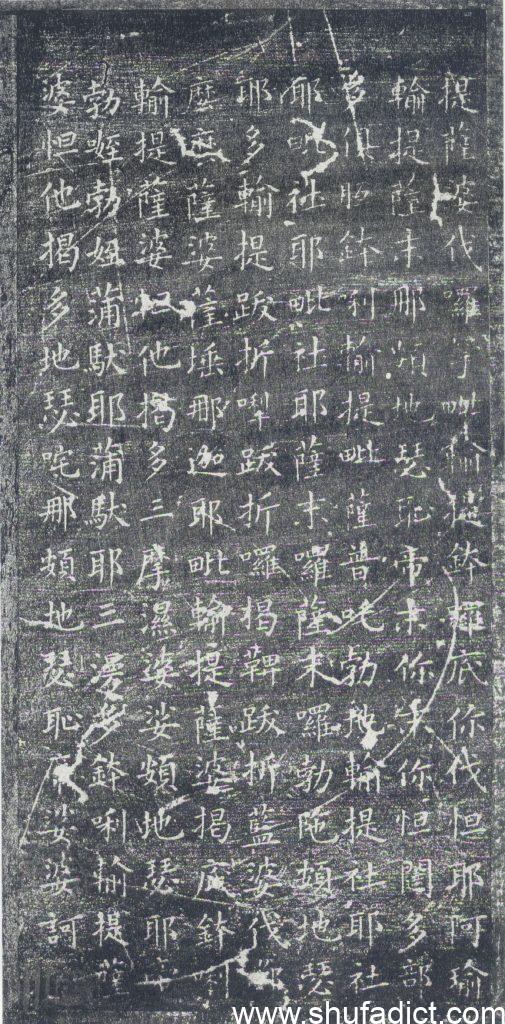 提薩婆伐囉拏毗輸提鉢羅底你伐怛耶阿瑜
輸提薩末那頞地瑟恥帝末你末你怛闥多部
多俱胝鉢唎輸提毗薩普吒勃地輸提社耶社
耶毗社耶毗社耶薩末囉薩末囉勃陁頞地瑟
耶多輸提跋折犁跋折囉楬鞞跋折藍婆伐都
麼麼薩婆薩埵那迦耶毗輸提薩婆揭底鉢唎
輸提薩婆怛他揭多三摩濕婆娑頞地瑟耶帝
勃勃蒲馱耶蒲馱耶三漫多鉢唎輸提薩
婆怛他揭多地瑟咤那頞地瑟恥帝娑婆訶
www.shufadict.com